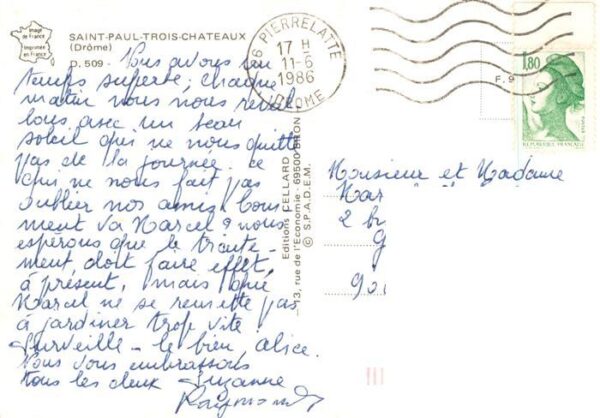 Image
de France
Imprimée
en France
SAINT-PAUL-TROIS-CHATEAUX
(Drôme)
D. 509 -
Nous avons un
temps superbe; chaque
matin nous nous réveil
lons avec un beau
soleil qui ne nous quitte
pas de la journée. Ce
qui ne nous fait pas
oublier nos amis. Com
ment va Marcel? nous
espérons que le traite-
ment doit faire effet,
à présent, mais que
Marcel ne se remette pas
à jardiner trop vite!
Surveille - le bien alice.
Nous vous embrassons
tous les deux Suzanne
Raymond
Editions CELLARD
13, rue de l'Economie - 69500 BRON
© S.P.A.D.E.M.
26 PIERRELATTE
17 H
11-6
1986
DROME
F. 9
1,80
REPUBLIQUE FRANÇAISE
Monsieur et Madame
Mar
2 bi
G
90